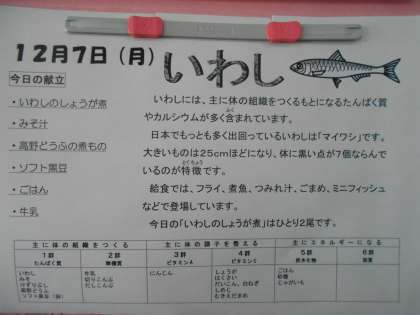 12月7日(月)
いわし
今日の献立
・いわしのしょうが煮
・みそ汁
・高野どうふの煮もの
・ソフト黒豆
・ごはん
・牛乳
いわしには、主に体の組織をつくるもとになるたんぱく質
やカルシウムが多く含まれています。
日本でもっとも多く出回っているいわしは「マイワシ」です。
大きいものは25cmほどになり、体に黒い点が7個ならんで
いるのが特徴です。
給食では、フライ、煮魚、つみれ汁、ごまめ、ミニフィッシュ
などで登場しています。
今日の「いわしのしょうが煮」はひとり2尾です。
主に体の組織をつくる 主に体の調子を整える 主にエネルギーになる
1群 2群 3群 4群 5群 6群
たんぱく質 無機質 ビタミンA ビタミンC 炭水化物 脂質
いわし 牛乳 にんじん しょうが ごはん
みそ 切りこんぶ はくさい 砂糖
けずりぶし だしこんぶ だいこん、白ねぎ じゃがいも
高野どうふ しめじ
ソフト黒豆 むきえだまめ